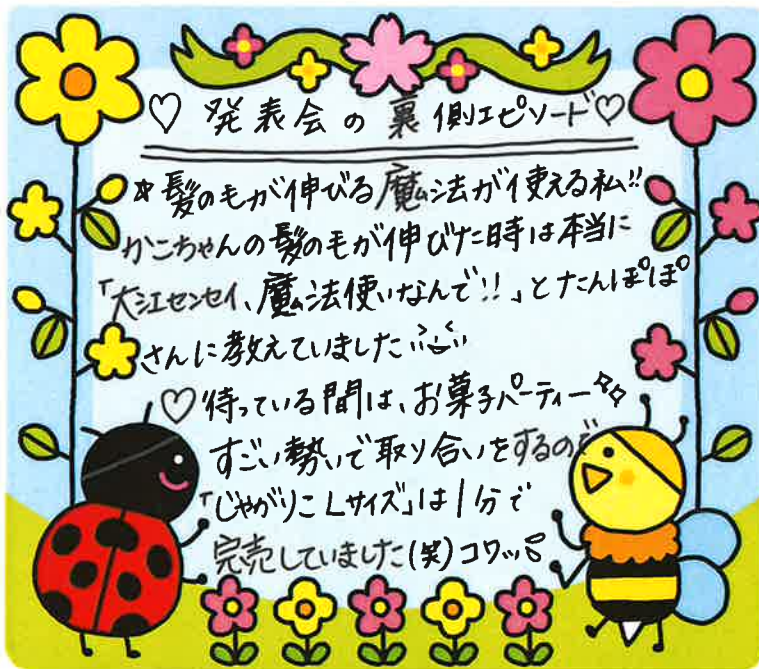 ♡ 発表会の裏側エピソード♡
☆髪のモが伸びる魔法が使える私!!
かこちゃんの髪のモが伸びた時は本当に
「大江センセイ、魔法使いなんで!!」とたんぽぽ
さんに教えていました
♡待っている間は、お菓子パーティー
すごい勢いで取り合いをするので
「じゃがりこLサイズ」は1分で
完売していました(笑)コワッ